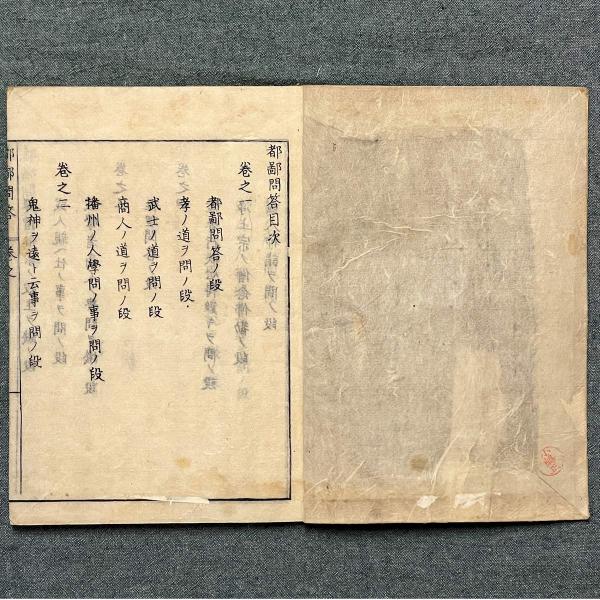 都鄙問答目次
卷之一
都鄙問答ノ段
孝ノ道ヲ問ノ段
武士ノ道ヲ問ノ段
商人ノ道ヲ問ノ段
播州ノ人學問ノ事ヲ問ノ段
卷之二
鬼神ヲ遠ト云事ヲ問ノ段
都鄙問答 卷之